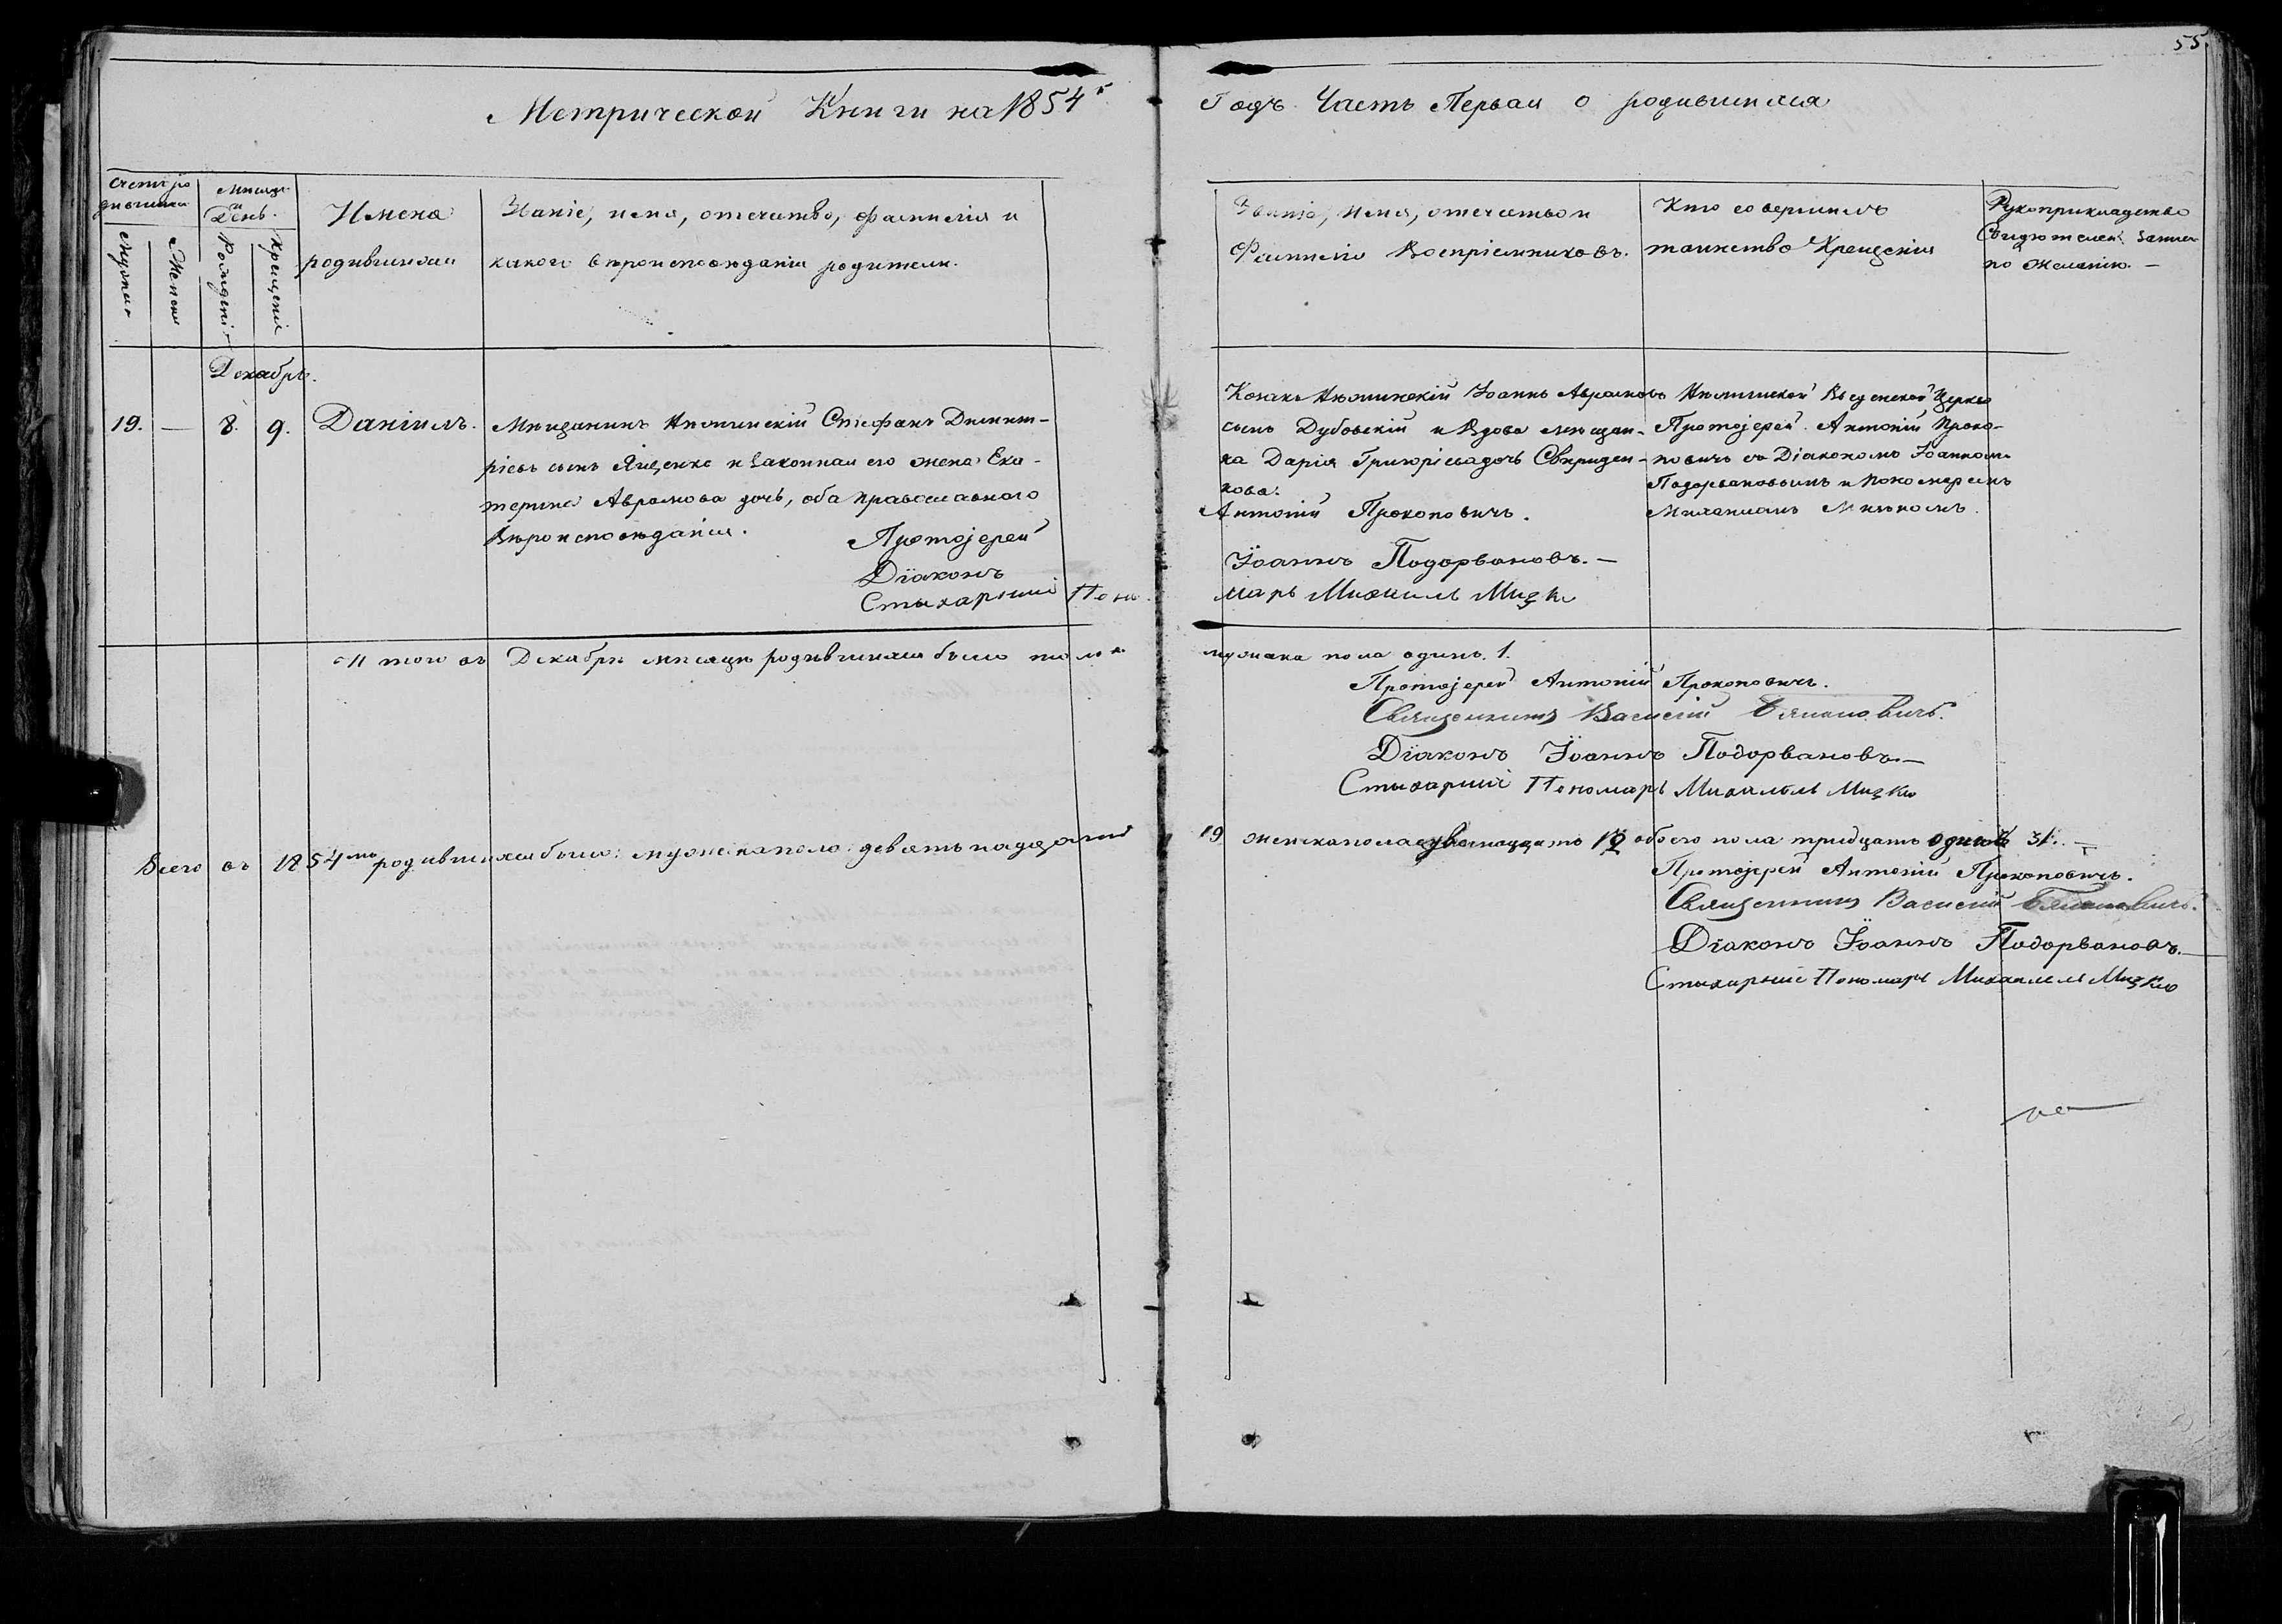 55.
Метрической Книги на 1854й Годъ Часть Первая о родившихся
Счетъ ро
дившихся
Мужска
Женска
Месяцъ
и
День.
Рожденія
Крещенія
Имена
родившихся
Званіе, имя, отчество, фамилія и
какого вѣроисповѣданія родители.
Званіе, имя, отчество и
Фамилія Воспріемниковъ.
Кто совершилъ
таинство Крещенія
Рукоприкладство
Свидѣтелей записи
по желанію. —
Декабрь.
19. — 8. 9. Даніилъ.
Мѣщанинъ Нѣжинскій Стефанъ Димит-
ріевъ сынъ Ященко и Законная его жена Ека-
терина Аврамова дочь, оба православного
Вѣроисповѣданія.
Козакъ Нѣжинскій Іоаннъ Аврамовъ
сынъ Дубовскій и Вдова мѣщан-
ка Дарія Григоріева дочь Свириден-
кова.
Нѣжинской Введенской Церкви
Протоіерей Антоній Проко-
повичъ съ Діакономъ Іоанномъ
Подорвановымъ и пономаремъ
Михаиломъ Мицькомъ.
Протоіерей Антоній Прокоповичъ.
Діаконъ Іоаннъ Подорвановъ. —
Стихарный Пономарь Михаилъ Мицко
Итого въ Декабрѣ месяцѣ родившихся было мужска пола одинъ. 1.
Протоіерей Антоній Прокоповичъ.
Священникъ Василій
Діаконъ Іоаннъ Подорвановъ. —
Стихарный Пономарь Михаилъ Мицко
Всего въ 1854мъ родившихся было: мужеска пола девятьнадцать 19 женска пола двѣнадцать 12 обоего пола тридцать одинъ 31. —
Протоіерей Антоній Прокоповичъ.
Священникъ Василій
Діаконъ Іоаннъ Подорвановъ. —
Стихарный Пономарь Михаилъ Мицко